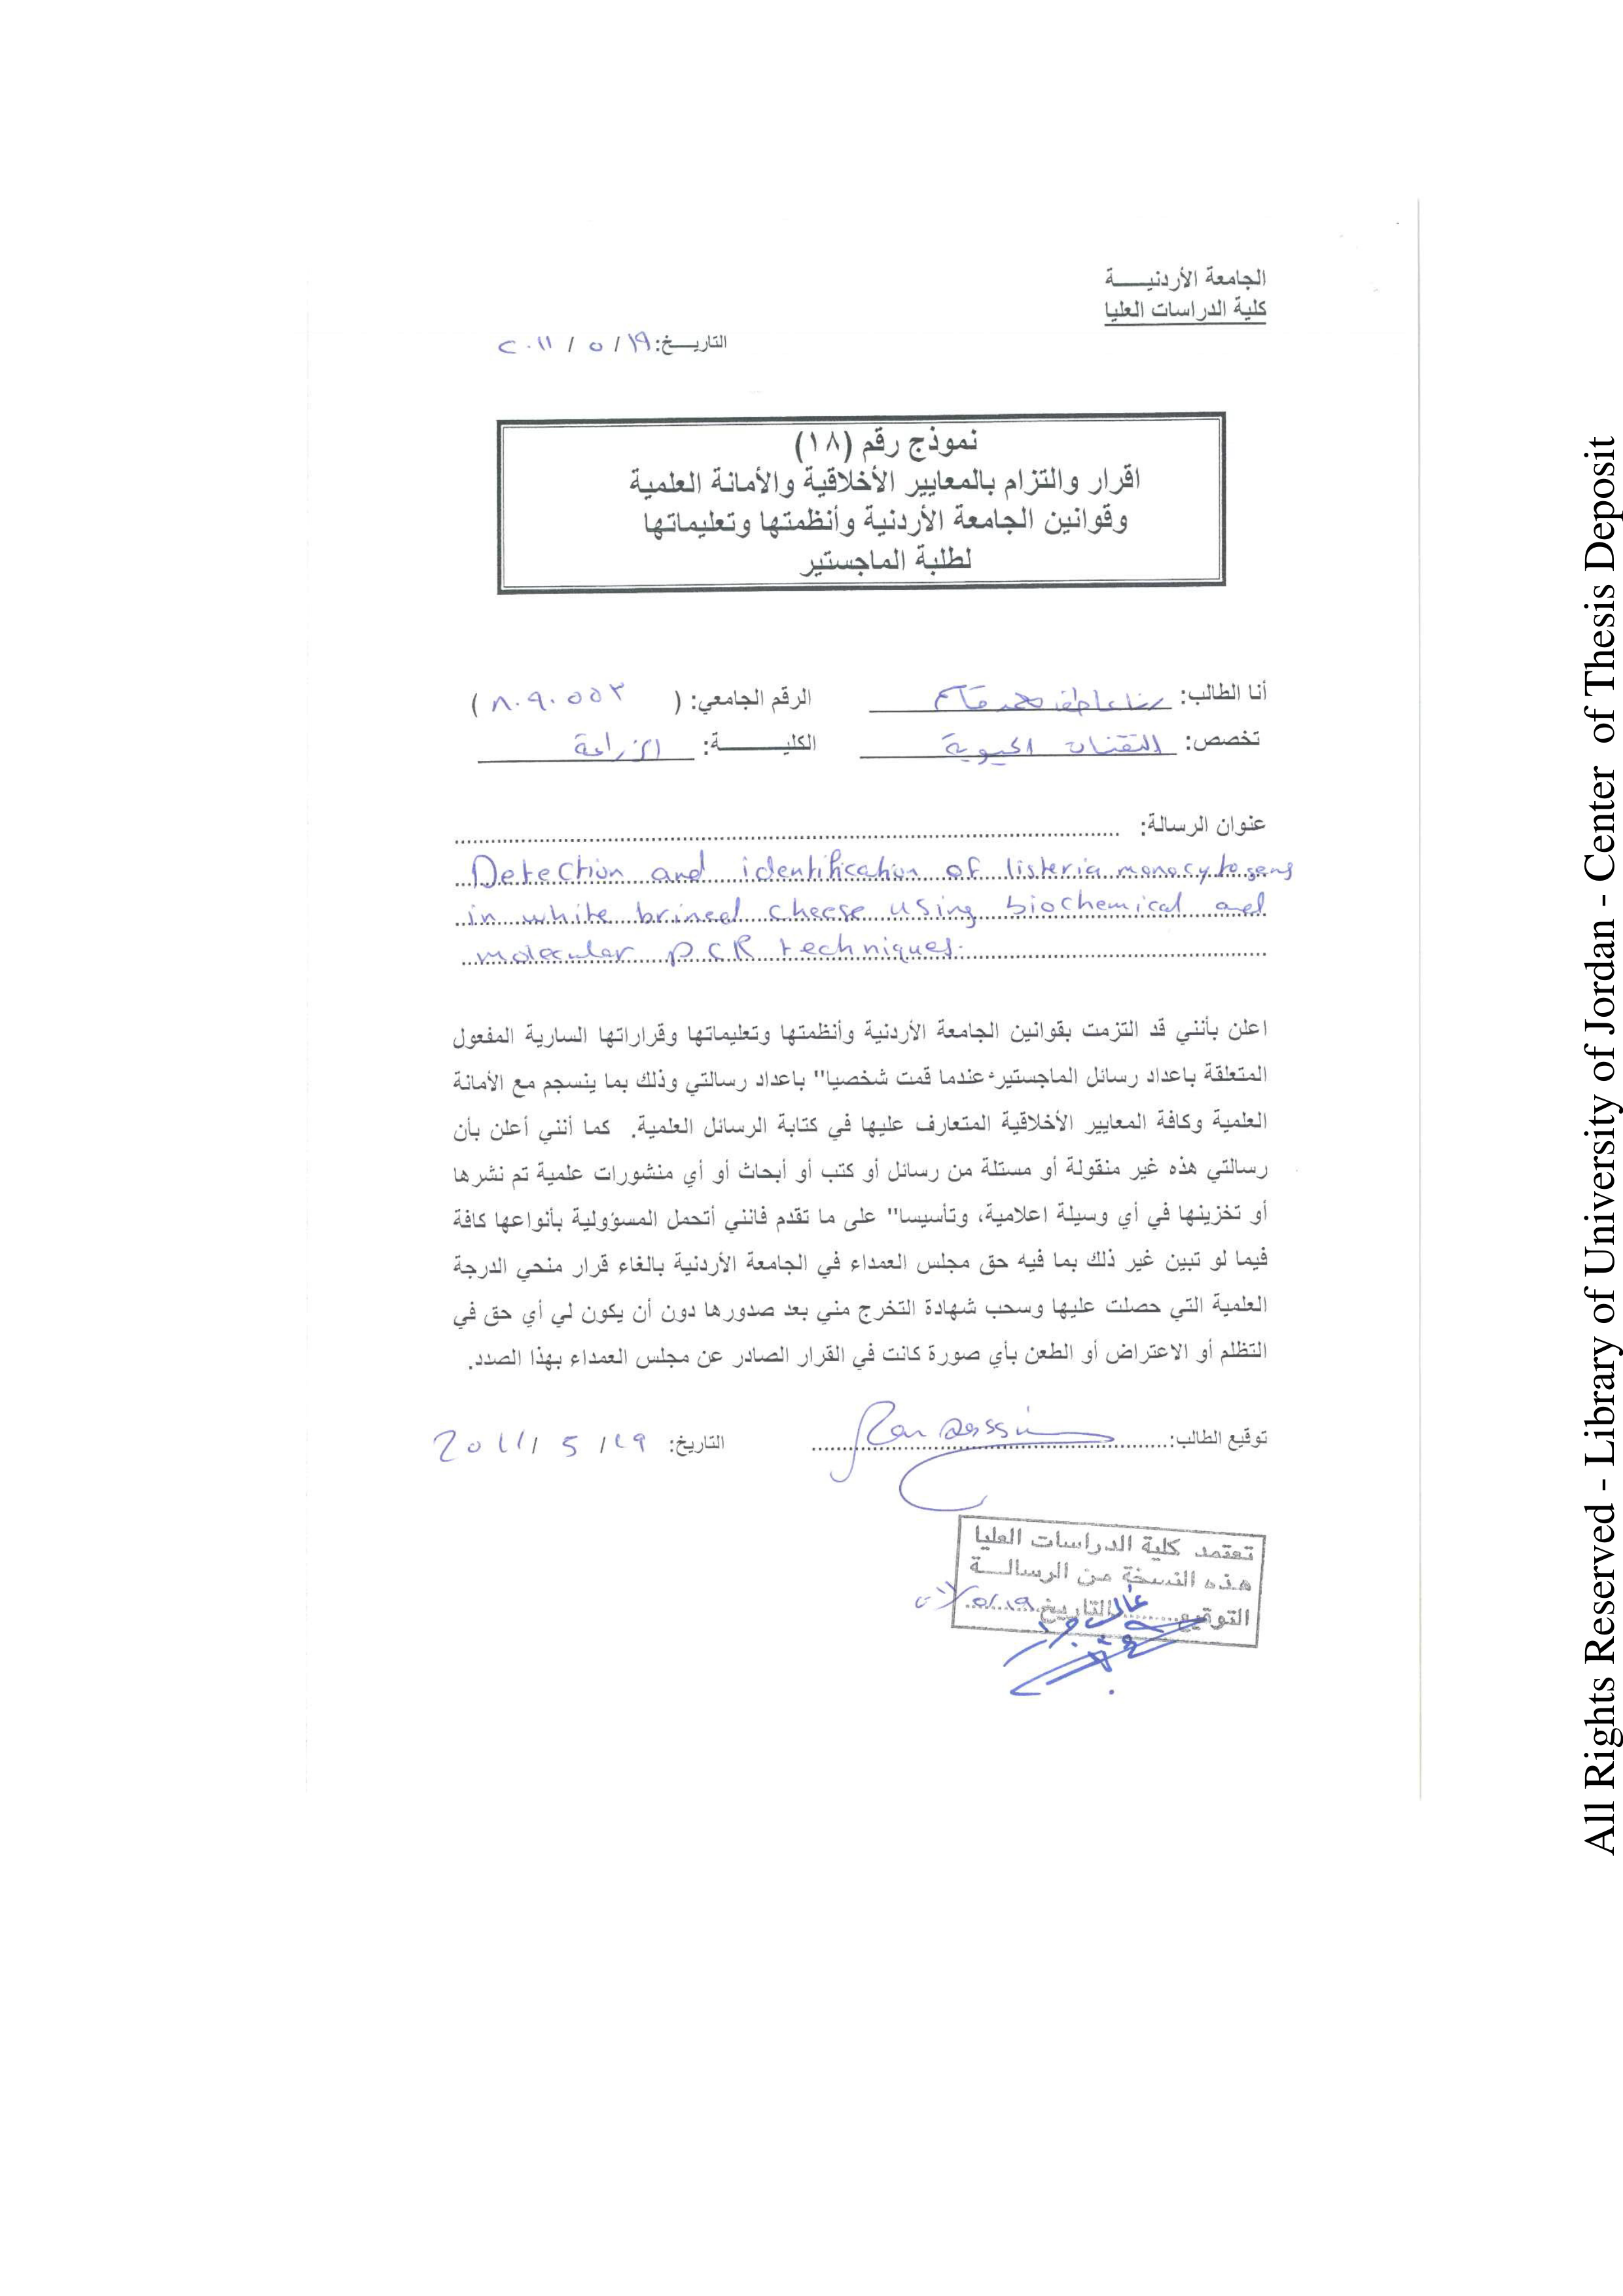 الجامعة الأردنيـــــة
كلية الدراسات العليا
التاريـــخ: ١٩ / ٥ / ٢٠١١
نموذج رقم (١٨)
اقرار والتزام بالمعايير الأخلاقية والأمانة العلمية
وقوانين الجامعة الأردنية وأنظمتها وتعليماتها
لطلبة الماجستير
أنا الطالب: محمد الرقم الجامعي: ( ٨٠٩٠٥٥٣ )
تخصص: التقنيات الحيوية الكليــــــــة: الزراعة
عنوان الرسالة:
Detection and identification of listeria monocytogens
in white brined cheese using biochemical and
molecular PCR techniques.
اعلن بأنني قد التزمت بقوانين الجامعة الأردنية وأنظمتها وتعليماتها وقراراتها السارية المفعول
المتعلقة باعداد رسائل الماجستير عندما قمت شخصيا" باعداد رسالتي وذلك بما ينسجم مع الأمانة
العلمية وكافة المعايير الأخلاقية المتعارف عليها في كتابة الرسائل العلمية. كما أنني أعلن بأن
رسالتي هذه غير منقولة أو مستلة من رسائل أو كتب أو أبحاث أو أي منشورات علمية تم نشرها
أو تخزينها في أي وسيلة اعلامية، وتأسيسا" على ما تقدم فانني أتحمل المسؤولية بأنواعها كافة
فيما لو تبين غير ذلك بما فيه حق مجلس العمداء في الجامعة الأردنية بالغاء قرار منحي الدرجة
العلمية التي حصلت عليها وسحب شهادة التخرج مني بعد صدورها دون أن يكون لي أي حق في
التظلم أو الاعتراض أو الطعن بأي صورة كانت في القرار الصادر عن مجلس العمداء بهذا الصدد.
توقيع الطالب: التاريخ: 19 / 5 / 2011
تعتمد كلية الدراسات العليا
هذه النسخة من الرسالـــة
التوقيع......... التاريخ ١٩/٥
All Rights Reserved - Library of University of Jordan - Center of Thesis Deposit